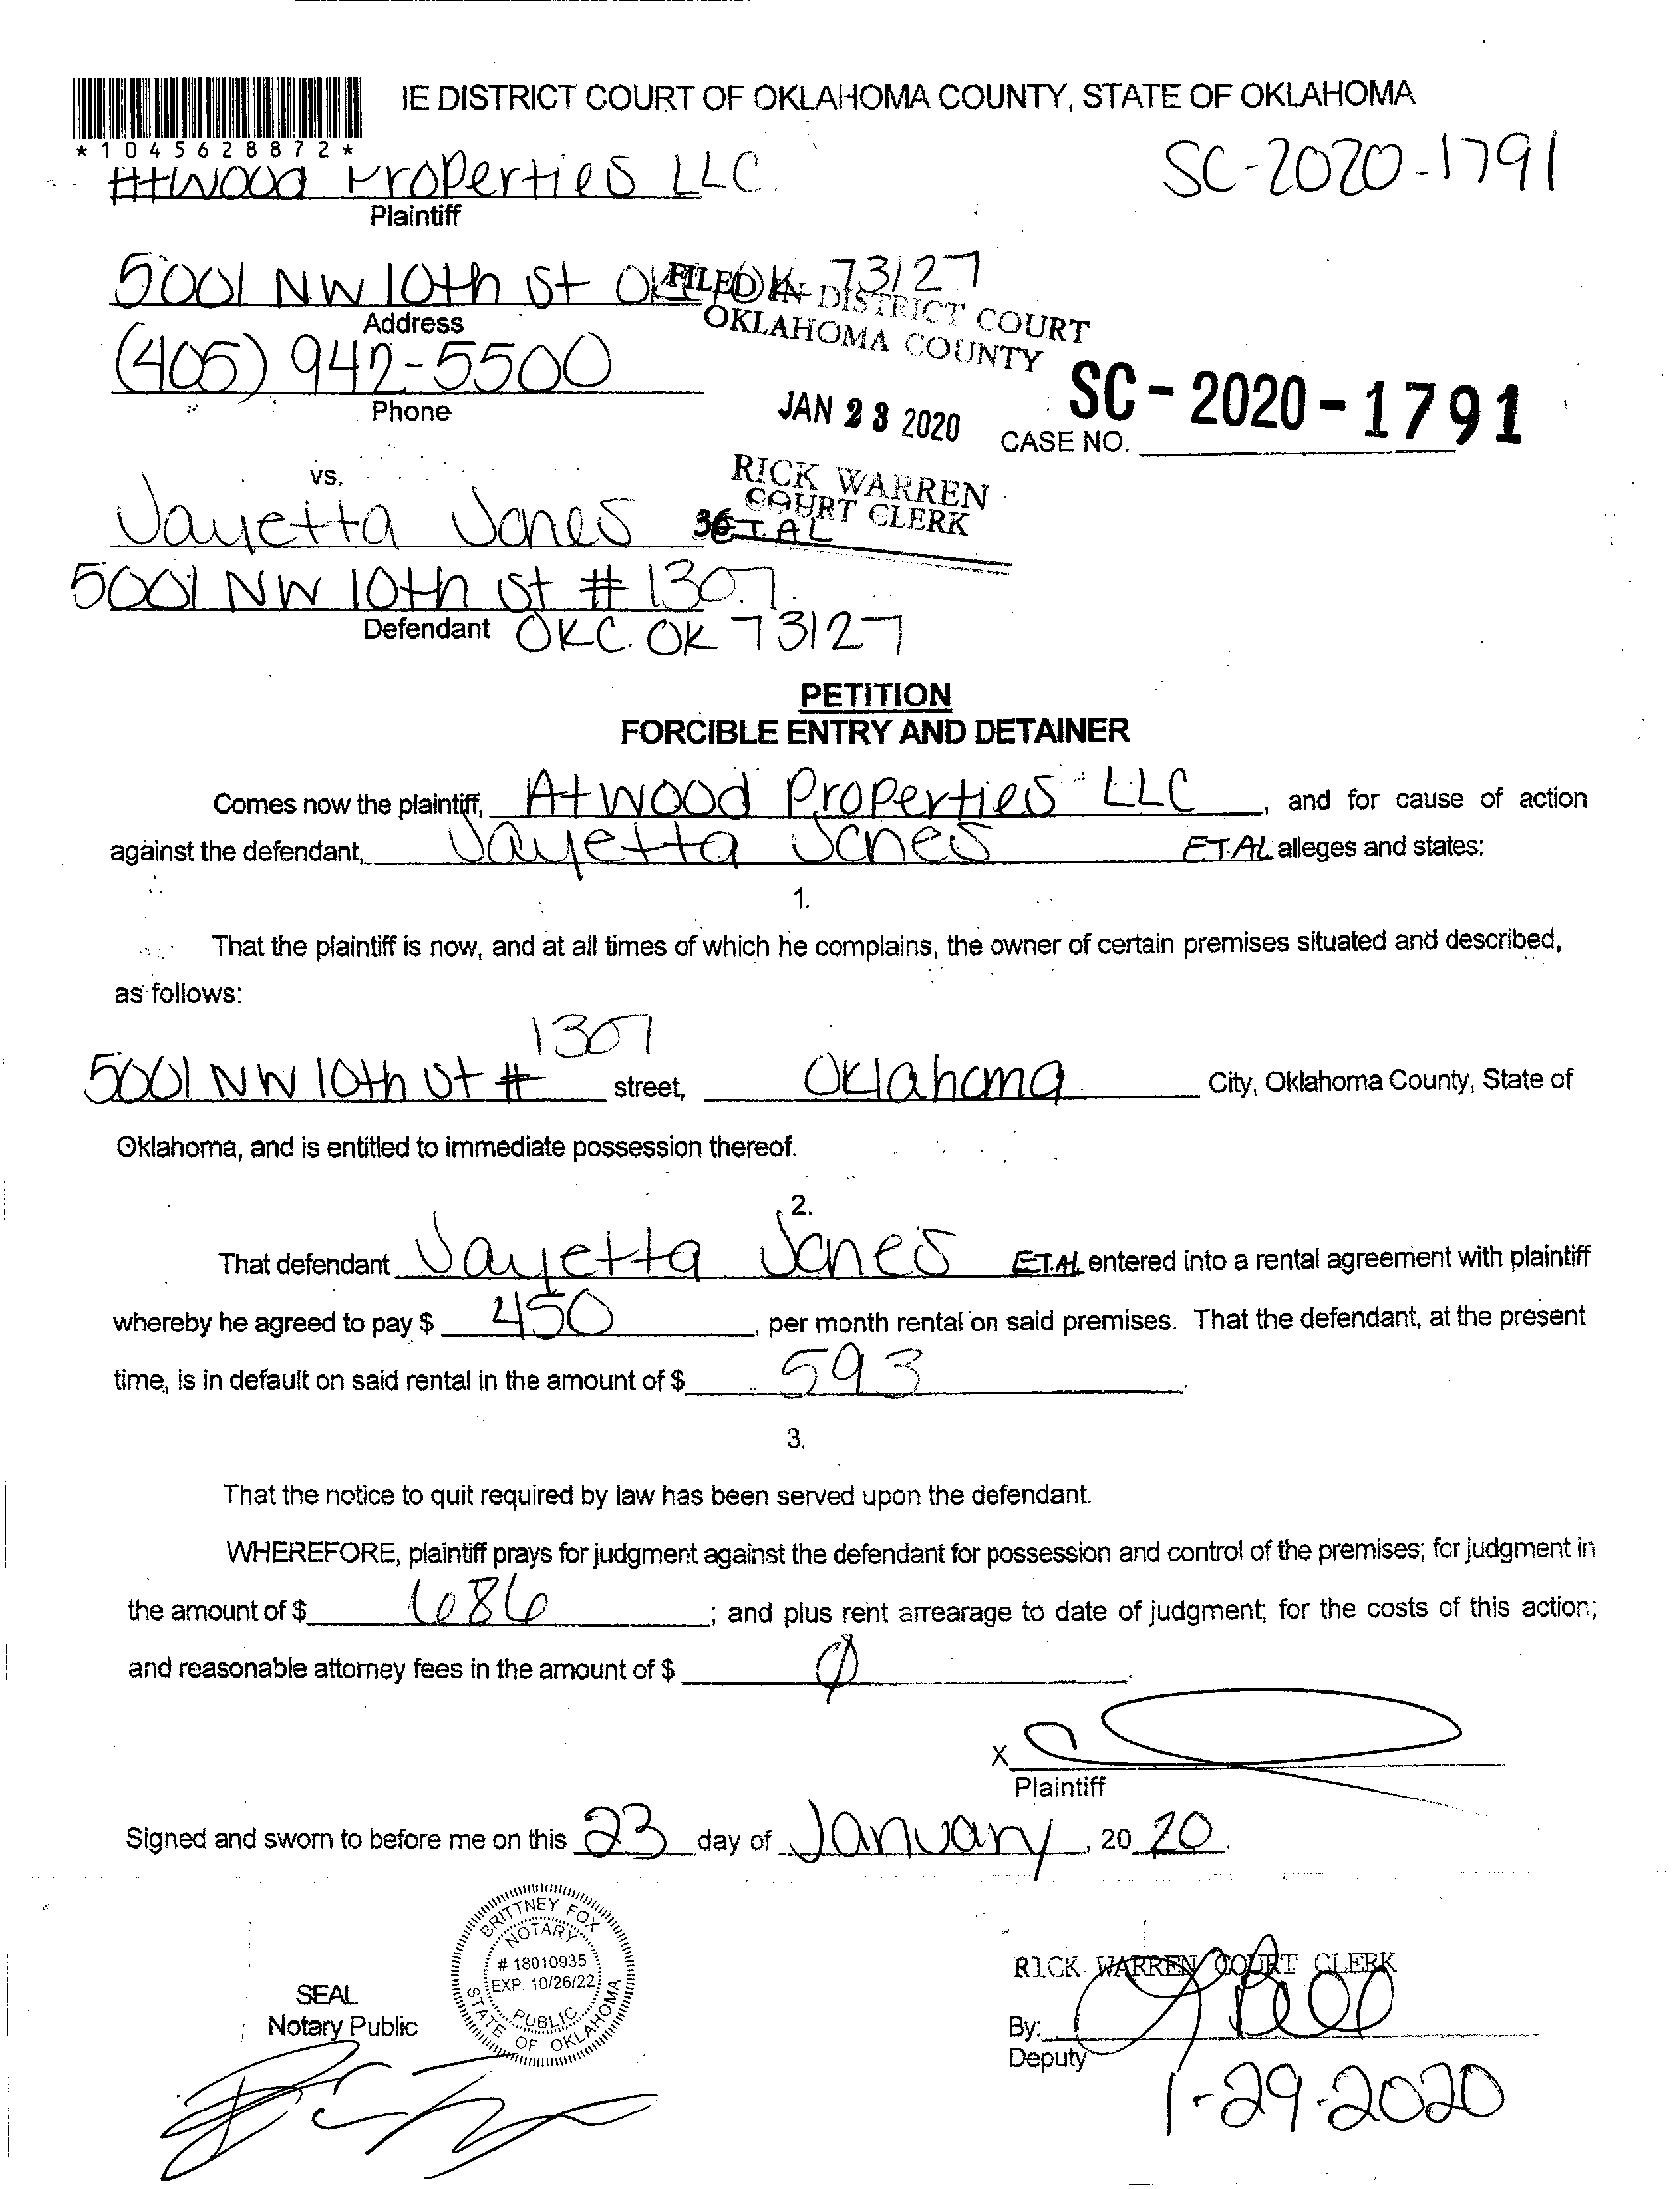 IE DISTRICT COURT OF OKLAHOMA COUNTY, STATE OF OKLAHOMA
*1045628872*
SC-2020-1791
Atwood Properties LLC.
Plaintiff
5001 NW 10th St OKC OK 73127
FILED IN DISTRICT COURT
OKLAHOMA COUNTY
Address
(405) 942-5500
Phone
JAN 23 2020
SC-2020-1791
CASE NO.
RICK WARREN
COURT CLERK
vs.
Jayetta Jones ET.AL
36
5001 NW 10th St # 1307
Defendant OKC. OK 73127
PETITION
FORCIBLE ENTRY AND DETAINER
Comes now the plaintiff, Atwood Properties LLC, and for cause of action
against the defendant, Jayetta Jones ET.AL alleges and states:
1.
That the plaintiff is now, and at all times of which he complains, the owner of certain premises situated and described,
as follows:
1307
5001 NW 10th St # street, Oklahoma City, Oklahoma County, State of
Oklahoma, and is entitled to immediate possession thereof.
2.
That defendant Jayetta Jones ET.AL entered into a rental agreement with plaintiff
whereby he agreed to pay $ 450, per month rental on said premises. That the defendant, at the present
time, is in default on said rental in the amount of $ 593.
3.
That the notice to quit required by law has been served upon the defendant.
WHEREFORE, plaintiff prays for judgment against the defendant for possession and control of the premises; for judgment in
the amount of $ 686; and plus rent arrearage to date of judgment; for the costs of this action;
and reasonable attorney fees in the amount of $ Ø.
X
Plaintiff
Signed and sworn to before me on this 23 day of January, 20 20.
BRITTNEY FOX
NOTARY
# 18010935
EXP. 10/26/22
PUBLIC
STATE OF OKLAHOMA
SEAL
Notary Public
RICK WARREN COURT CLERK
By:
Deputy
1-29-2020